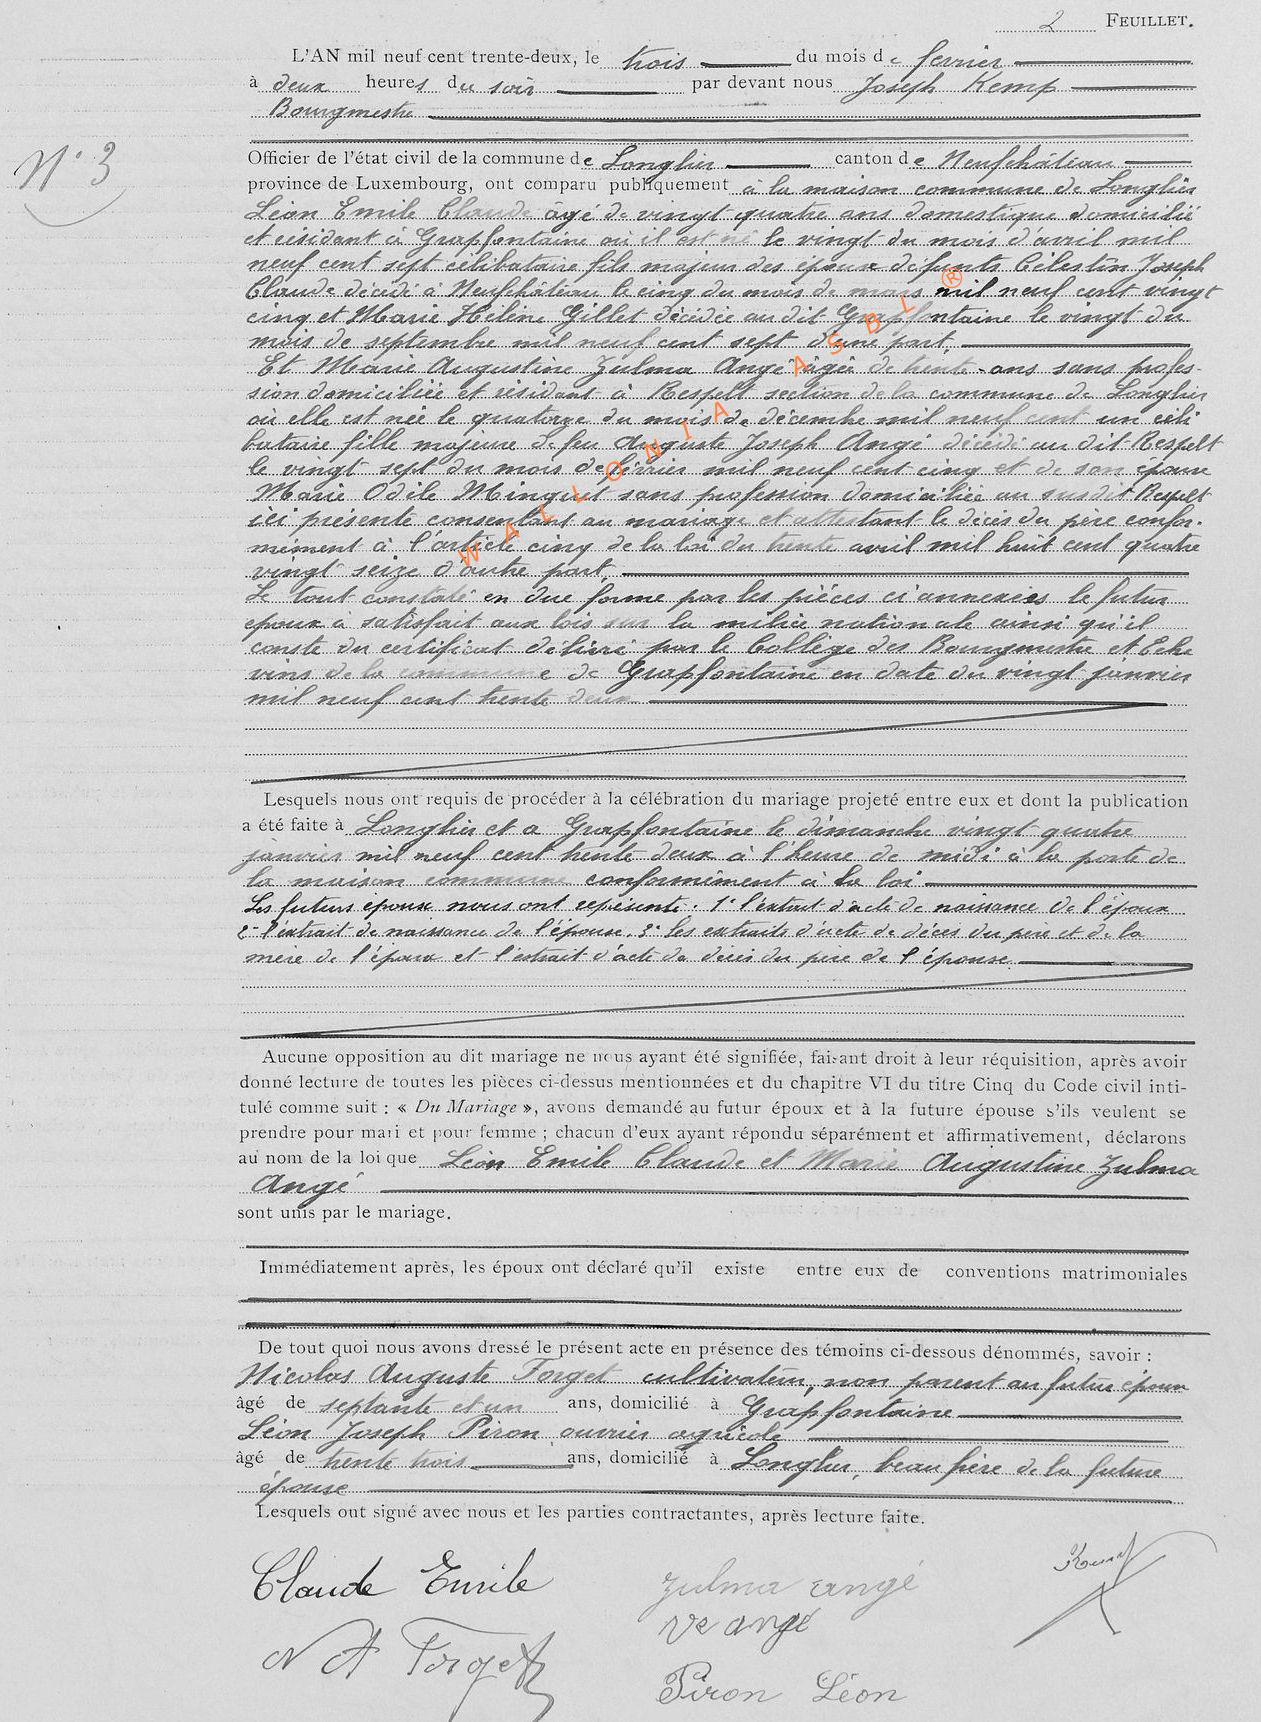 2 FEUILLET.
L'AN mil neuf cent trente-deux, le trois du mois de fevrier
à deux heures du soir par devant nous Joseph Kemp
Bourgmestre
N° 3
Officier de l'état civil de la commune de Longlier canton de Neufchâteau
province de Luxembourg, ont comparu publiquement à la maison commune de Longlier
Léon Emile Claude âgé de vingt quatre ans domestique domicilié
et résidant à Grapfontaine où il est né le vingt du mois d'avril mil
neuf cent sept célibataire fils majeur des époux défunts Célestin Joseph
Claude décédé à Neufchâteau le cinq du mois de mars mil neuf cent vingt
cinq et Marie Hélène Gillet décédée au dit Grapfontaine le vingt du
mois de septembre mil neuf cent sept d'une part.
Et Marie Augustine Zulma Angé âgée de trente ans sans profes-
sion domiciliée et résidant à Respelt section de la commune de Longlier
où elle est née le quatorze du mois de décembre mil neuf cent un céli
bataire fille majeure de feu Auguste Joseph Angé décédé au dit Respelt
le vingt sept du mois de février mil neuf cent cinq et de son épouse
Marie Odile Minguet sans profession domiciliée au susdit Respelt
ici présente consentant au mariage et attestant le décès du père confor-
mément à l'article cinq de la loi du trente avril mil huit cent quatre
vingt seize d'autre part.
Le tout constaté en due forme par les pièces ci annexées le futur
epoux a satisfait aux lois sur la milice nationale ainsi qu'il
conste du certificat délivré par le Collège des Bourgmestre et Eche
vins de la commune de Grapfontaine en date du vingt janvier
mil neuf cent trente deux
Lesquels nous ont requis de procéder à la célébration du mariage projeté entre eux et dont la publication
a été faite à Longlier et a Grapfontaine le dimanche vingt quatre
janvier mil neuf cent trente deux à l'heure de midi à la porte de
la maison commune conformément à la loi
Les futurs epoux nous ont représenté. 1° l'extrait d'acte de naissance de l'époux
2° l'extrait de naissance de l'épouse. 3° les extraits d'acte de décès du père et de la
mere de l'époux et l'extrait d'acte de décès du pere de l'épouse.
Aucune opposition au dit mariage ne nous ayant été signifiée, faisant droit à leur réquisition, après avoir
donné lecture de toutes les pièces ci-dessus mentionnées et du chapitre VI du titre Cinq du Code civil inti-
tulé comme suit : « Du Mariage », avons demandé au futur époux et à la future épouse s'ils veulent se
prendre pour mari et pour femme ; chacun d'eux ayant répondu séparément et affirmativement, déclarons
au nom de la loi que Léon Emile Claude et Marie Augustine Zulma
Angé
sont unis par le mariage.
Immédiatement après, les époux ont déclaré qu'il existe entre eux de conventions matrimoniales
De tout quoi nous avons dressé le présent acte en présence des témoins ci-dessous dénommés, savoir :
Nicolas Auguste Forget cultivateur, non parent au futur époux
âgé de septante et un ans, domicilié à Grapfontaine
Léon Joseph Piron ouvrier agricole
âgé de trente trois ans, domicilié à Longlier, beau frère de la future
épouse
Lesquels ont signé avec nous et les parties contractantes, après lecture faite.
Claude Emile
Zulma angé
Kemp
Ve angé
N A Forget
Piron Léon
WALLONIA ASBL ®